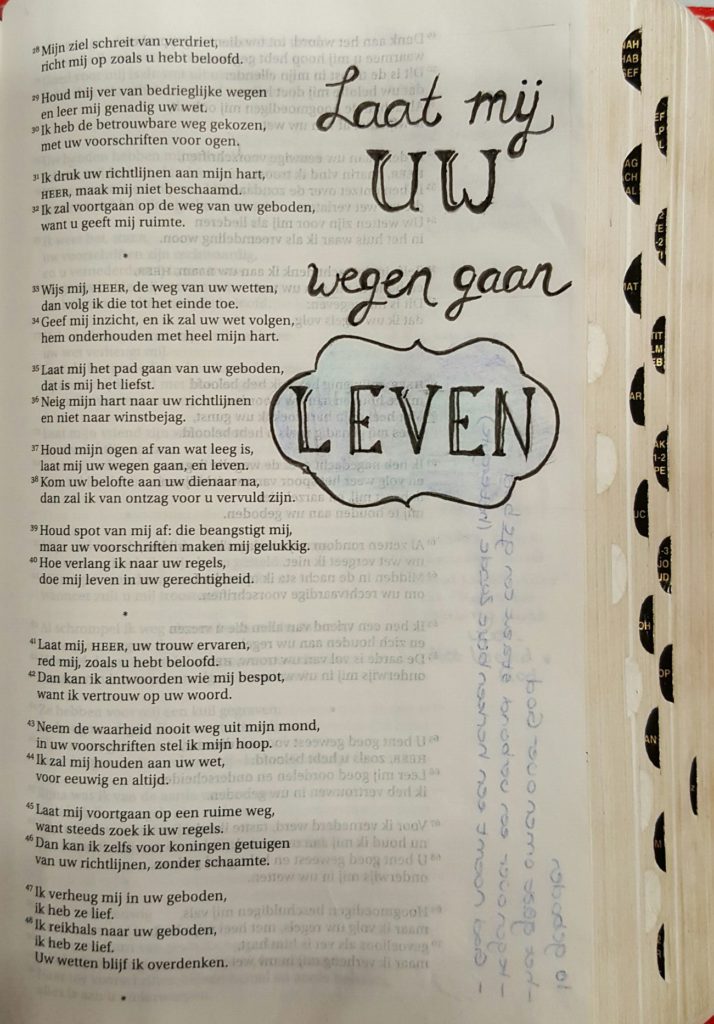 28 Mijn ziel schreit van verdriet,
richt mij op zoals u hebt beloofd.
29 Houd mij ver van bedrieglijke wegen
en leer mij genadig uw wet.
30 Ik heb de betrouwbare weg gekozen,
met uw voorschriften voor ogen.
31 Ik druk uw richtlijnen aan mijn hart,
HEER, maak mij niet beschaamd.
32 Ik zal voortgaan op de weg van uw geboden,
want u geeft mij ruimte.
*
33 Wijs mij, HEER, de weg van uw wetten,
dan volg ik die tot het einde toe.
34 Geef mij inzicht, en ik zal uw wet volgen,
hem onderhouden met heel mijn hart.
35 Laat mij het pad gaan van uw geboden,
dat is mij het liefst.
36 Neig mijn hart naar uw richtlijnen
en niet naar winstbejag.
37 Houd mijn ogen af van wat leeg is,
laat mij uw wegen gaan, en leven.
38 Kom uw belofte aan uw dienaar na,
dan zal ik van ontzag voor u vervuld zijn.
39 Houd spot van mij af: die beangstigt mij,
maar uw voorschriften maken mij gelukkig.
40 Hoe verlang ik naar uw regels,
doe mij leven in uw gerechtigheid.
*
41 Laat mij, HEER, uw trouw ervaren,
red mij, zoals u hebt beloofd.
42 Dan kan ik antwoorden wie mij bespot,
want ik vertrouw op uw woord.
43 Neem de waarheid nooit weg uit mijn mond,
in uw voorschriften stel ik mijn hoop.
44 Ik zal mij houden aan uw wet,
voor eeuwig en altijd.
45 Laat mij voortgaan op een ruime weg,
want steeds zoek ik uw regels.
46 Dan kan ik zelfs voor koningen getuigen
van uw richtlijnen, zonder schaamte.
47 Ik verheug mij in uw geboden,
ik heb ze lief.
48 Ik reikhals naar uw geboden,
ik heb ze lief.
Uw wetten blijf ik overdenken.
*
Laat mij
UW
wegen gaan
LEVEN